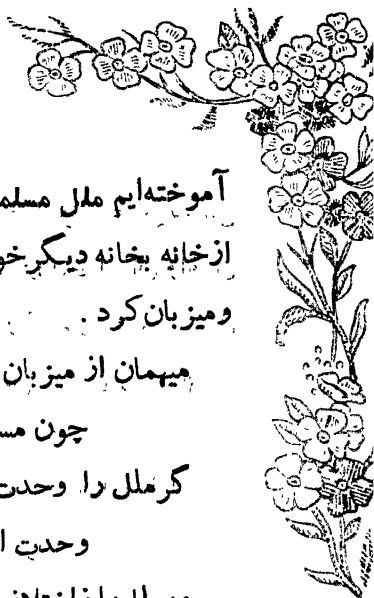 آموخته‌ایم ملل مسلم
ازخانه بخانه دیگر خو
ومیزبان کرد .
میهمان از میزبان
چون مس
گر ملل را وحدت
وحدت ا